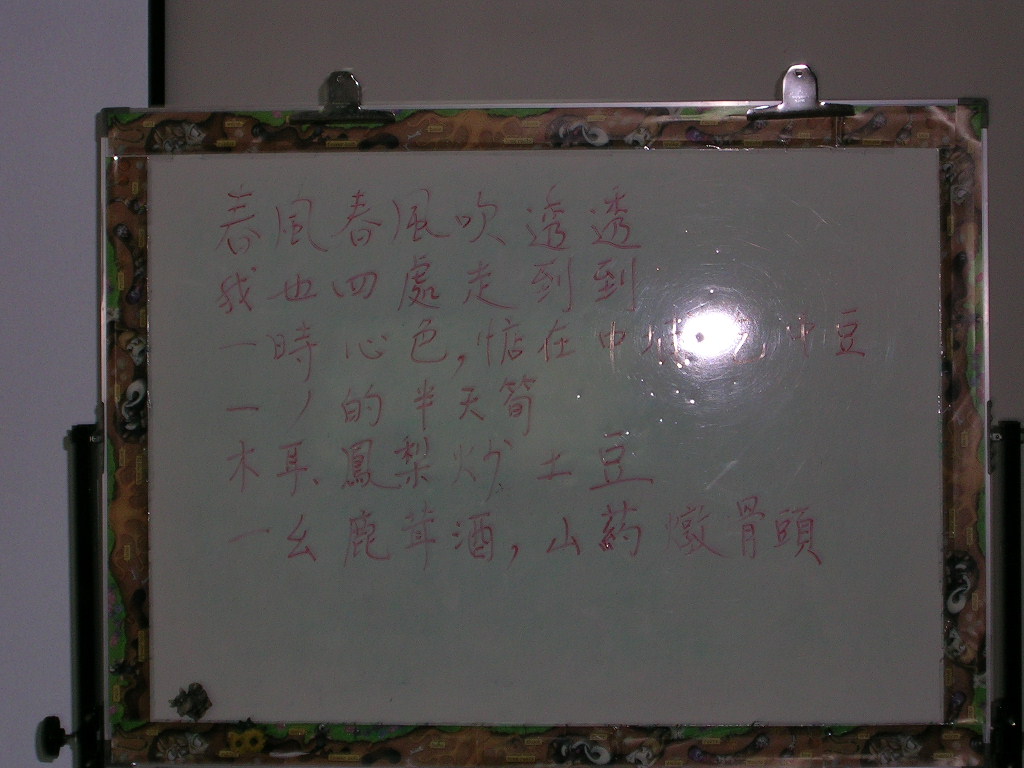 春風春風吹透透
我也四處走到到
一時心色,惦在中 中豆
一ノ的半天筍
木耳、鳳梨炒土豆
一幺鹿茸酒,山葯燉骨頭